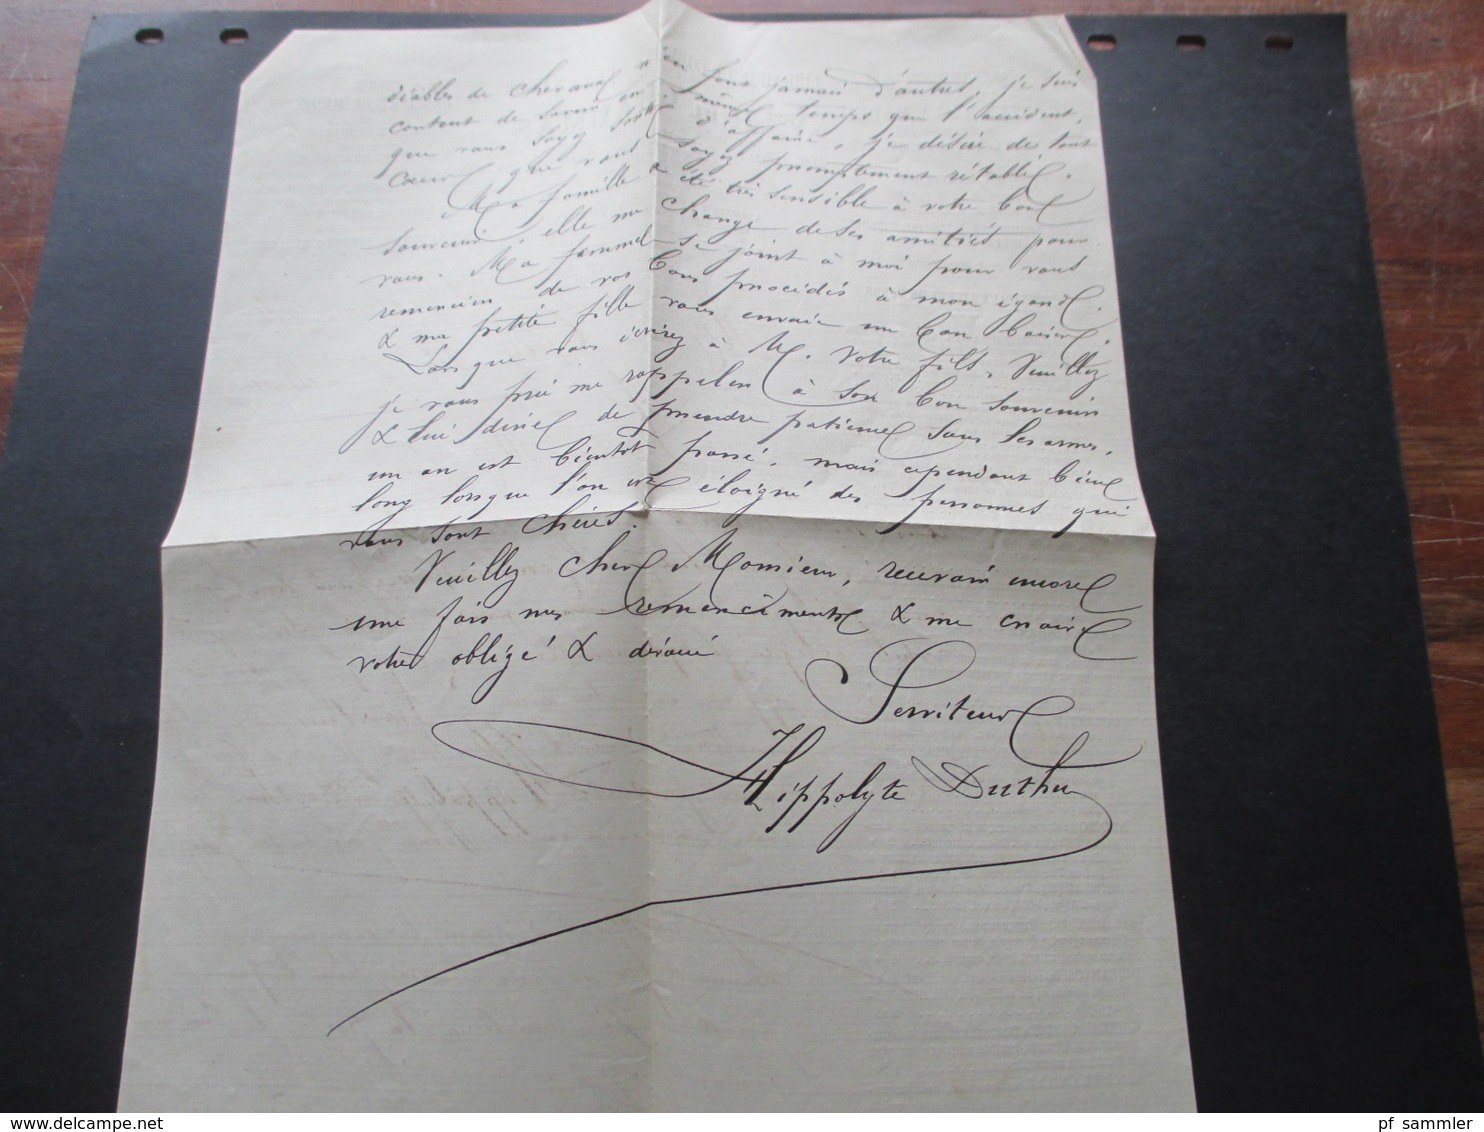 diables de chevaux n'en font jamais d'autres, je suis
content de savoir en même temps que l'accident,
que vous soyez sorti d'affaire, je désire de tout
coeur que vous soyez promptement rétabli.
Ma famille a été très sensible à votre bon
souvenir & elle me charge de ses amitiés pour
vous. Ma femme se joint à moi pour vous
remercier de vos bons procédés à mon égard.
& ma petite fille vous envoie un bon baiser.
Lorsque vous écrirez à M. votre fils, Veuillez
je vous prie me rappeler à son bon souvenir
& lui dire de prendre patience sous les armes,
un an est bientôt passé, mais cependant bien
long lorsque l'on est éloigné des personnes qui
vous sont chères.
Veuillez cher Monsieur, recevoir encore
une fois mes remerciements & me croire
votre obligé & dévoué
Serviteur
Hippolyte Duthu
pf_sammler